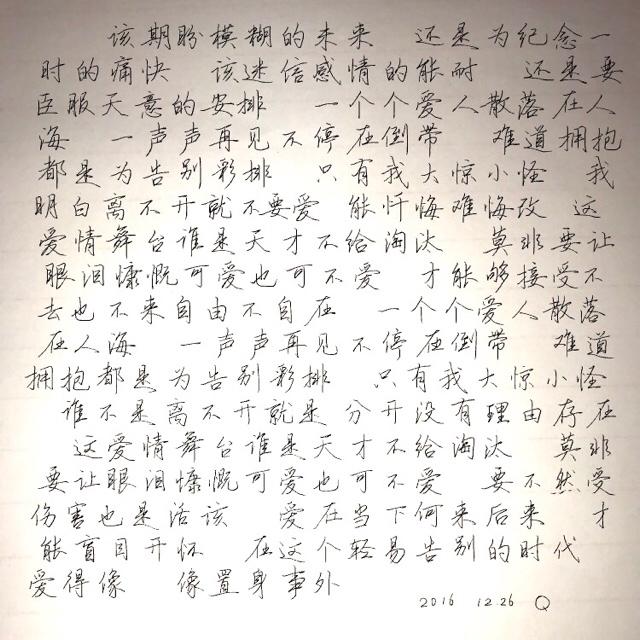 该期盼模糊的未来 还是为纪念一
时的痛快 该迷信感情的能耐 还是要
臣服天意的安排 一个个爱人散落在人
海 一声声再见不停在倒带 难道拥抱
都是为告别彩排 只有我大惊小怪 我
明白离不开就不要爱 能忏悔难悔改 这
爱情舞台谁是天才不给淘汰 莫非要让
眼泪慷慨可爱也可不爱 才能够接受不
去也不来自由不自在 一个个爱人散落
在人海 一声声再见不停在倒带 难道
拥抱都是为告别彩排 只有我大惊小怪
谁不是离不开就是 分开没有理由存在
这爱情舞台谁是天才不给淘汰 莫非
要让眼泪慷慨可爱也可不爱 要不然受
伤害也是活该 爱在当下何来后来 才
能盲目开怀 在这个轻易告别的时代
爱得像 像置身事外
2016 12 26 Q